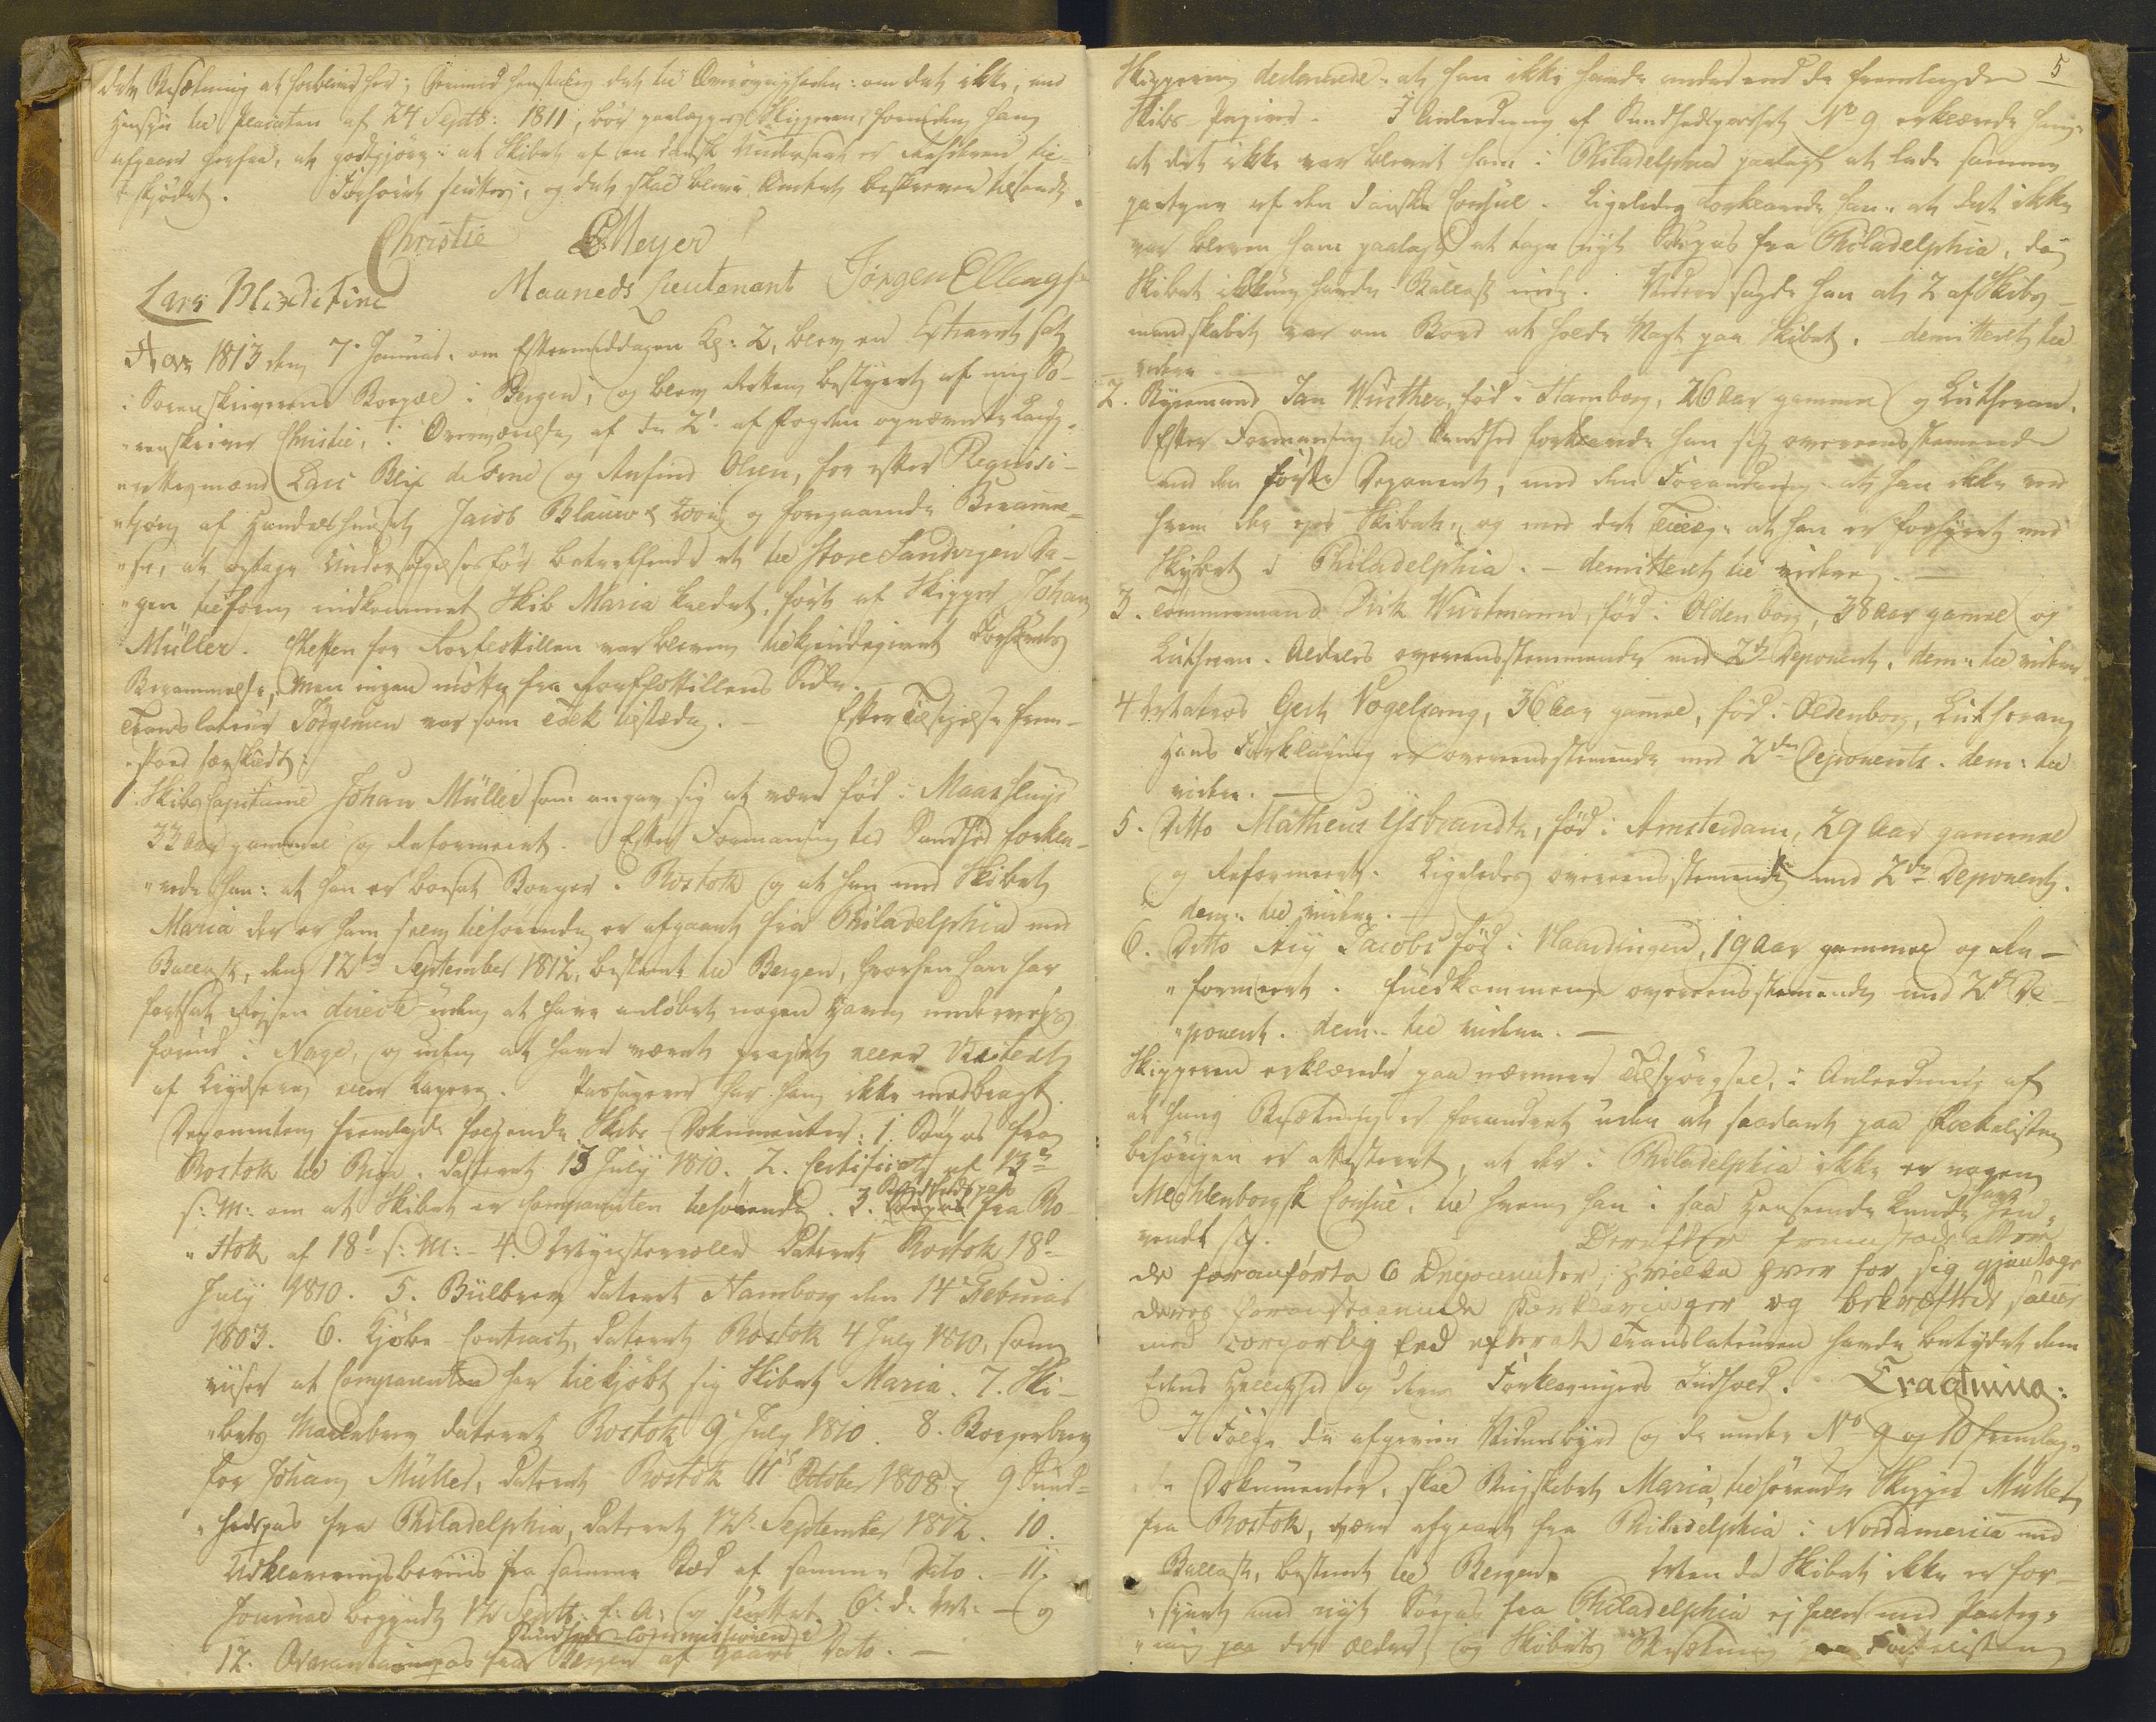 dets Besætning at forblive her; hvorimod henstilles det til Øvrigheden: om det ikke, med
Hensyn til Placaten af 24 Septb: 1811, bør paalægges Skipperen, forinden han
afgaaer herfra, at godtgjøre: at Skibet af en dansk Undersaat er
skjødet. Forhøret sluttes, og det skal blive Amtet beskreven tilsendt.
Christie CMeyer
Lars Blix de Fine Maaneds Lieutenant Jørgen Ellings
Aar 1813 den 7. Januar. om Eftermiddagen Kl: 2, blev en Extraret sat
i Sorenskriverens Boepæl i Bergen, og blev Retten bestyret af mig So-
"renskriver Christie, i Overværelse af de 2de af Fogden opnævnte Laug-
"rettesmænd Lars Blix de Fine og Anfind Olsen, for efter Reqvisi-
"tion af Handelshuset Jacob Blauw & and foregaaende Beramme-
"lse, at optage Undersøgelsesforhør betræffende et til Store Sandvigen Da-
"gen tilforn indkommet Skib Maria kaldet, ført af Skipper Johan
Müller. Cheffen for Roeflotillen var bleven tilkjendegivet Forhørets
Berammelse, men ingen mødte fra Roeflotillens Side.
Translateur Jørgensen var som Tolk tilstæde. — Efter Tilsigelse frem-
"stoed særskildt:
1. Skibs Capitaine Johan Müller som angav sig at være fød i Maassluis
33 Aar gammel og Reformeert. Efter Formaning til Sandhed forkla-
"rede han: at han er boesat Borger i Rostok og at han med Skibet
Maria der er ham selv tilhørende er afgaaet fra Philadelphia med
Ballast, den 12te September 1812, bestemt til Bergen, hvorhen han har
fortsat Rejsen directe uden at have anløbet nogen Havn underveis
forind i Norge, og uden at have været prajet eller Visiteret
af Krydsere eller Kapere. Passagerer har han ikke medbragt.
Deponenten fremlagde følgende Skibs Dokumenter: 1. Søepas fra
Rostok til Riga, dateret 13 July 1810. 2. Certificat af 13de
s: M: om at Skibet er Comparenten tilhørende. 3. Sundhedspas fra Ro-
"stok af 18de s: M: - 4. Mynsterrolle dateret Rostok 18de
July 1810. 5. Bülbrev dateret Hamborg den 14de Februar
1803. 6. Kjøbe-Contract, dateret Rostok 4 July 1810, som
viiser at Comparenten har tilkjøbt sig Skibet Maria. 7. Ski-
"bets Maalebrev dateret Rostok 9de July 1810. 8. Borgerbrev
for Johan Müller, dateret Rostok 11te October 1808. 9 Sund-
"hedspas fra Philadelphia, dateret 12te September 1812. 10.
Udklareringsbeviis fra samme Sted af samme Dato. - 11.
Journal begyndt 12 Septb: f: A: og sluttet 6te d: M: - og
12. Qvarantainepas fra Sundheds-Commissionen i Bergen af Gaars Dato. —
5
Skipperen declarerede: at han ikke havde andre end de fremlagde
Skibs-Papirer. I Anledning af Sundhedspasset No 9 erklærede han:
at det ikke var blevet ham i Philadelphia paalagt at lade samme
paategne af den danske Consul. Ligeledes forklarede han: at det ikke
var bleven ham paalagt at tage nyt Søepas fra Philadelphia, da
Skibet ikkun havde Ballast inde. Videre sagde han at 2 af Skibs-
mandskabet var om Bord at holde Vagt paa Skibet. - demitteret til
videre
2. Styrmand Jan Würther, fød i Hamborg, 26 Aar gammel og Lutheran.
Efter Formaning til Sandhed forklarede han sig overeensstemmende
med den første Deponent, med den Forandring at han ikke veed
hvem der ejer Skibet, og med det Tillæg: at han er forhyret med
Skibet i Philadelphia. - demitteret til videre. —
3. Tømmermand Dirk Wurtmann, fød i Oldenborg, 38 Aar gamel og
Lutheran. Aldeles overeensstemmende med 2den Deponent. dem: til videre
4 Matros Gert Vogelsang, 36 Aar gamel, fød i Oldenborg, Lutheran
Hans Forklaring er overeensstemende med 2den Deponents. dem: til
videre. —
5. Ditto Matheus Ysbrandts, fød i Amsterdam, 29 Aar gammel
og Reformeert. Ligeledes overeensstemende med 2den Deponent.
dem: til videre. —
6. Ditto Arij Jacobs fød i Vlaardingen, 19 Aar gammel og Re-
"formeert. Fuldkommen overeensstemende med 2den De-
"ponent. dem: til videre. —
Skipperen erklærede paa nærmere Tilspørgsel, i Anledning af
at hans Besætning er forandret uden at saadant paa Rollelisten
behørigen er attesteret, at der i Philadelphia ikke er nogen
Mechlenborgsk Consul, til hvem han i saa Henseende kunde have hen-
vendt sig. Derefter fremstode atter
de foranførte 6 Deponenter, hvilke hver for sig gjentoge
deres foranstaaende Forklaringer og bekræftede samme
med corporlig Eed efterat Translateuren havde betydet dem
Edens Hellighed og deres Forklaringers Indhold. Eragtning:
I Følge de afgivne Vidnesbyrd og de under No 9 og 10 fremlag-
de Dokumenter, skal Brigskibet Maria, tilhørende Skipper Müller
fra Rostok, være afgaaet fra Philadelphia i Nordamerica med
Ballast, bestemt til Bergen. Men da Skibet ikke er for-
"synet med nyt Søepas fra Philadelphia ej heller med Paateg-
"ning paa det ældre, og Skibets Besætning Rollelisten